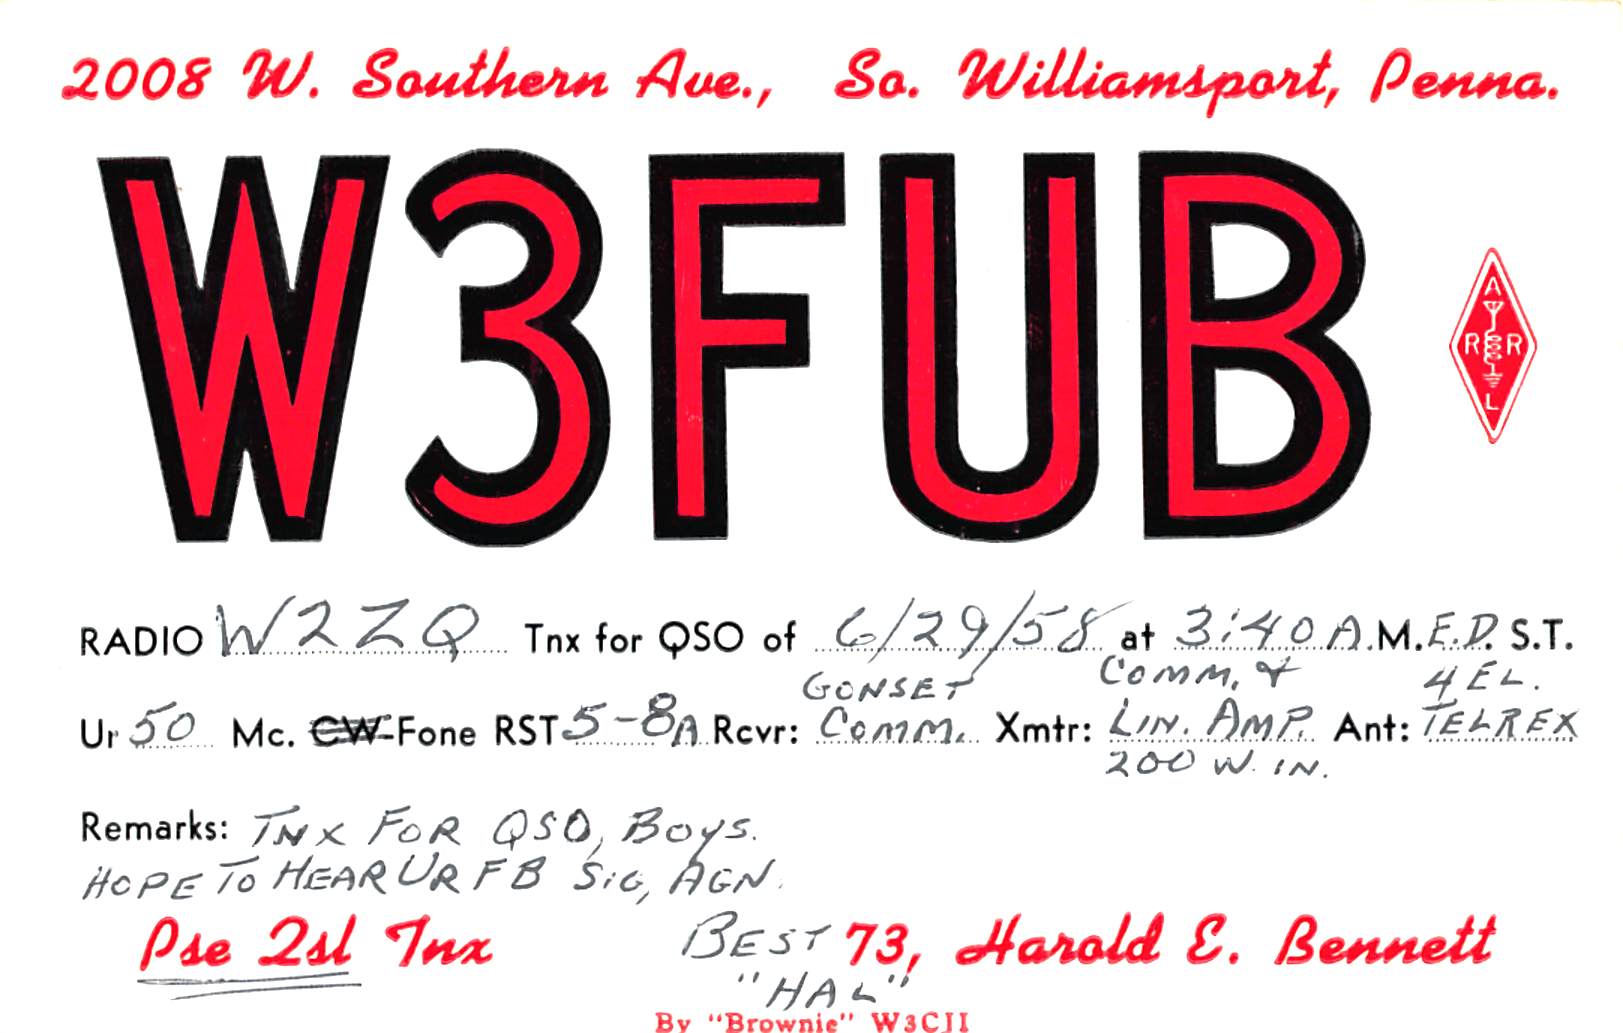 2008 W. Southern Ave., So. Williamsport, Penna.
W3FUB
A
R R
L
RADIO W2ZQ Tnx for QSO of 6/29/58 at 3:40 A.M. E.D.S.T.
GONSET Comm. & 4 EL.
Ur 50 Mc. CW-Fone RST 5-8A Rcvr: Comm. Xmtr: LIN. AMP. Ant: TELREX
200 W. IN.
Remarks: TNX FOR QSO, BOYS.
HOPE TO HEAR UR FB SIG, AGN.
Pse QSL Tnx BEST 73, Harold E. Bennett
"HAL"
By "Brownie" W3CJI